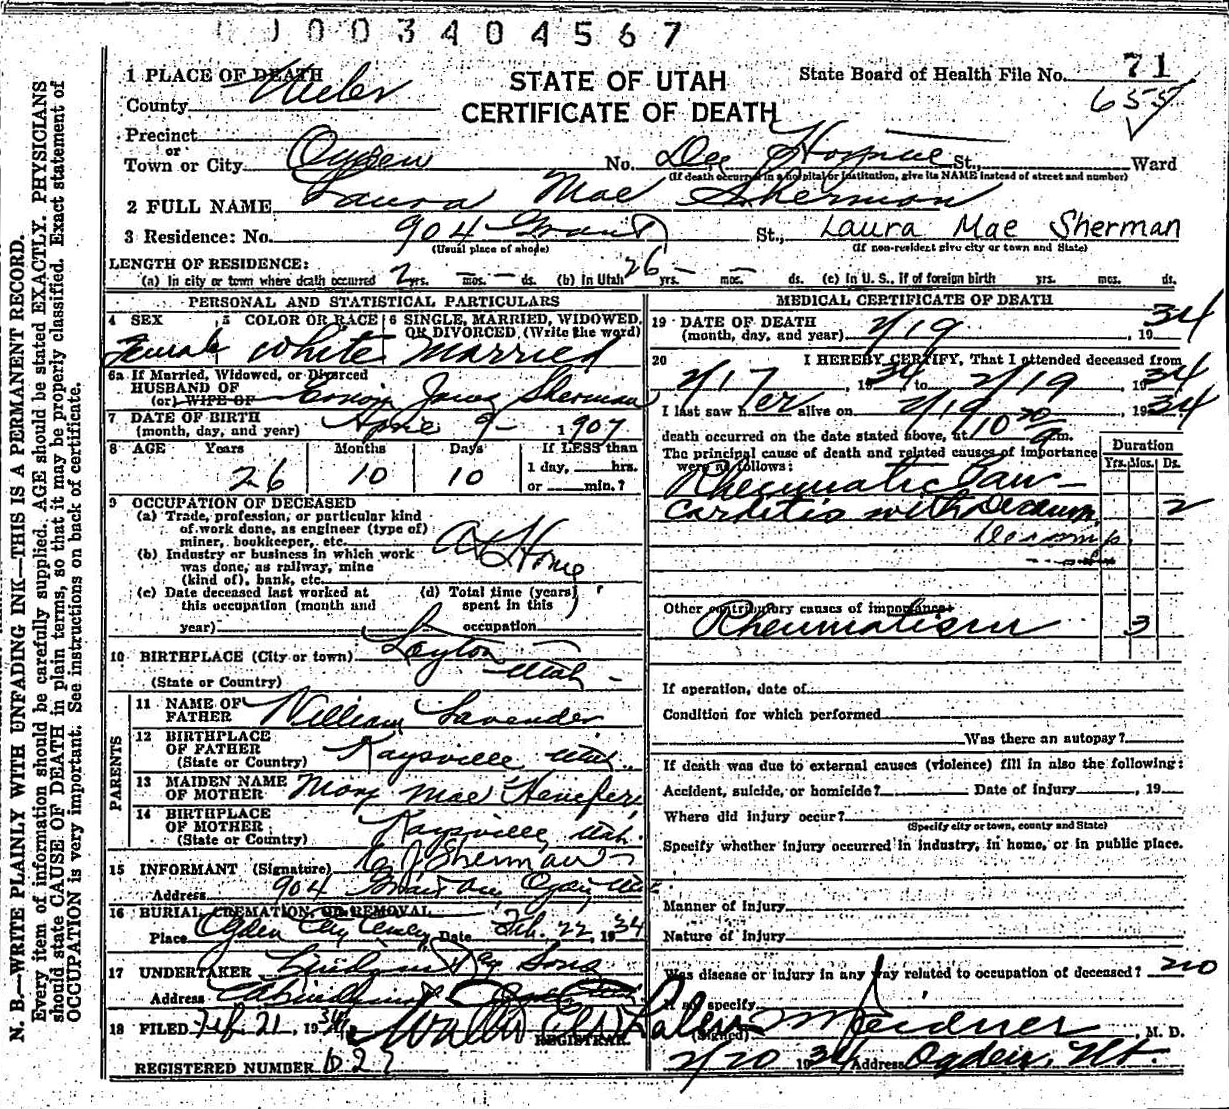 0003404567
1 PLACE OF DEATH
County Weber
STATE OF UTAH
CERTIFICATE OF DEATH
State Board of Health File No. 71
655
Precinct
or
Town or City Ogden No. Dee St., Ward
(If death occurred in a hospital or institution, give its NAME instead of street and number)
2 FULL NAME Laura Mae Sherman
3 Residence: No. 904 Grant St., Laura Mae Sherman
(Usual place of abode) (If non-resident give city or town and State)
LENGTH OF RESIDENCE:
(a) In city or town where death occurred 2 yrs. — mos. — ds. (b) In Utah 26 yrs. — mos. — ds. (c) In U. S., if of foreign birth yrs. mos. ds.
PERSONAL AND STATISTICAL PARTICULARS
4 SEX 5 COLOR OR RACE 6 SINGLE, MARRIED, WIDOWED, OR DIVORCED (Write the word)
Female White Married
6a If Married, Widowed, or Divorced
HUSBAND OF
(or) WIFE OF Sherman
7 DATE OF BIRTH
(month, day, and year) April 9 - 1907
8 AGE Years Months Days If LESS than
1 day, hrs.
26 10 10 or min.?
9 OCCUPATION OF DECEASED
(a) Trade, profession, or particular kind
of work done, as engineer (type of)
miner, bookkeeper, etc. At Home
(b) Industry or business in which work
was done, as railway, mine
(kind of), bank, etc.
(c) Date deceased last worked at
this occupation (month and
year)
(d) Total time (years)
spent in this
occupation
10 BIRTHPLACE (City or town) Layton
(State or Country) Utah
PARENTS
11 NAME OF
FATHER William Lavender
12 BIRTHPLACE
OF FATHER
(State or Country) Kaysville, Utah.
13 MAIDEN NAME
OF MOTHER Mary Mae
14 BIRTHPLACE
OF MOTHER
(State or Country) Kaysville, Utah.
15 INFORMANT (Signature) E J Sherman
Address 904 Grant Ave, Ogden Utah
16 BURIAL, CREMATION, OR REMOVAL
Place Ogden City Date Feb. 22, 1934
17 UNDERTAKER Lindquist & Sons
Address
18 FILED Feb. 21, 1934
REGISTRAR.
REGISTERED NUMBER
MEDICAL CERTIFICATE OF DEATH
19 DATE OF DEATH
(month, day, and year) 2/19, 1934
20 I HEREBY CERTIFY, That I attended deceased from
2/17, 1934 to 2/19, 1934
I last saw her alive on 2/19, 1934
death occurred on the date stated above, at 10 m.
The principal cause of death and related causes of importance
were as follows:
Duration
Yrs. Mos. Ds.
Rheumatic Pan-
carditis with 2
Other contributory causes of importance:
Rheumatism 3
If operation, date of
Condition for which performed
Was there an autopsy?
If death was due to external causes (violence) fill in also the following:
Accident, suicide, or homicide? Date of Injury, 19
Where did injury occur?
(Specify city or town, county and State)
Specify whether injury occurred in industry, in home, or in public place.
Manner of Injury
Nature of Injury
Was disease or injury in any way related to occupation of deceased? no
If so, specify
(Signed) Meidner M. D.
2/20 1934 Address Ogden, Ut.
N. B.—WRITE PLAINLY WITH UNFADING INK—THIS IS A PERMANENT RECORD.
Every item of information should be carefully supplied. AGE should be stated EXACTLY. PHYSICIANS
should state CAUSE OF DEATH in plain terms, so that it may be properly classified. Exact statement of
OCCUPATION is very important. See instructions on back of certificate.